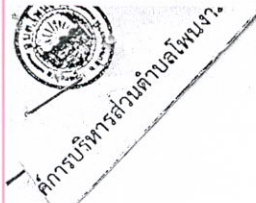 ค์การบริหารส่วนตำบลโพนงา